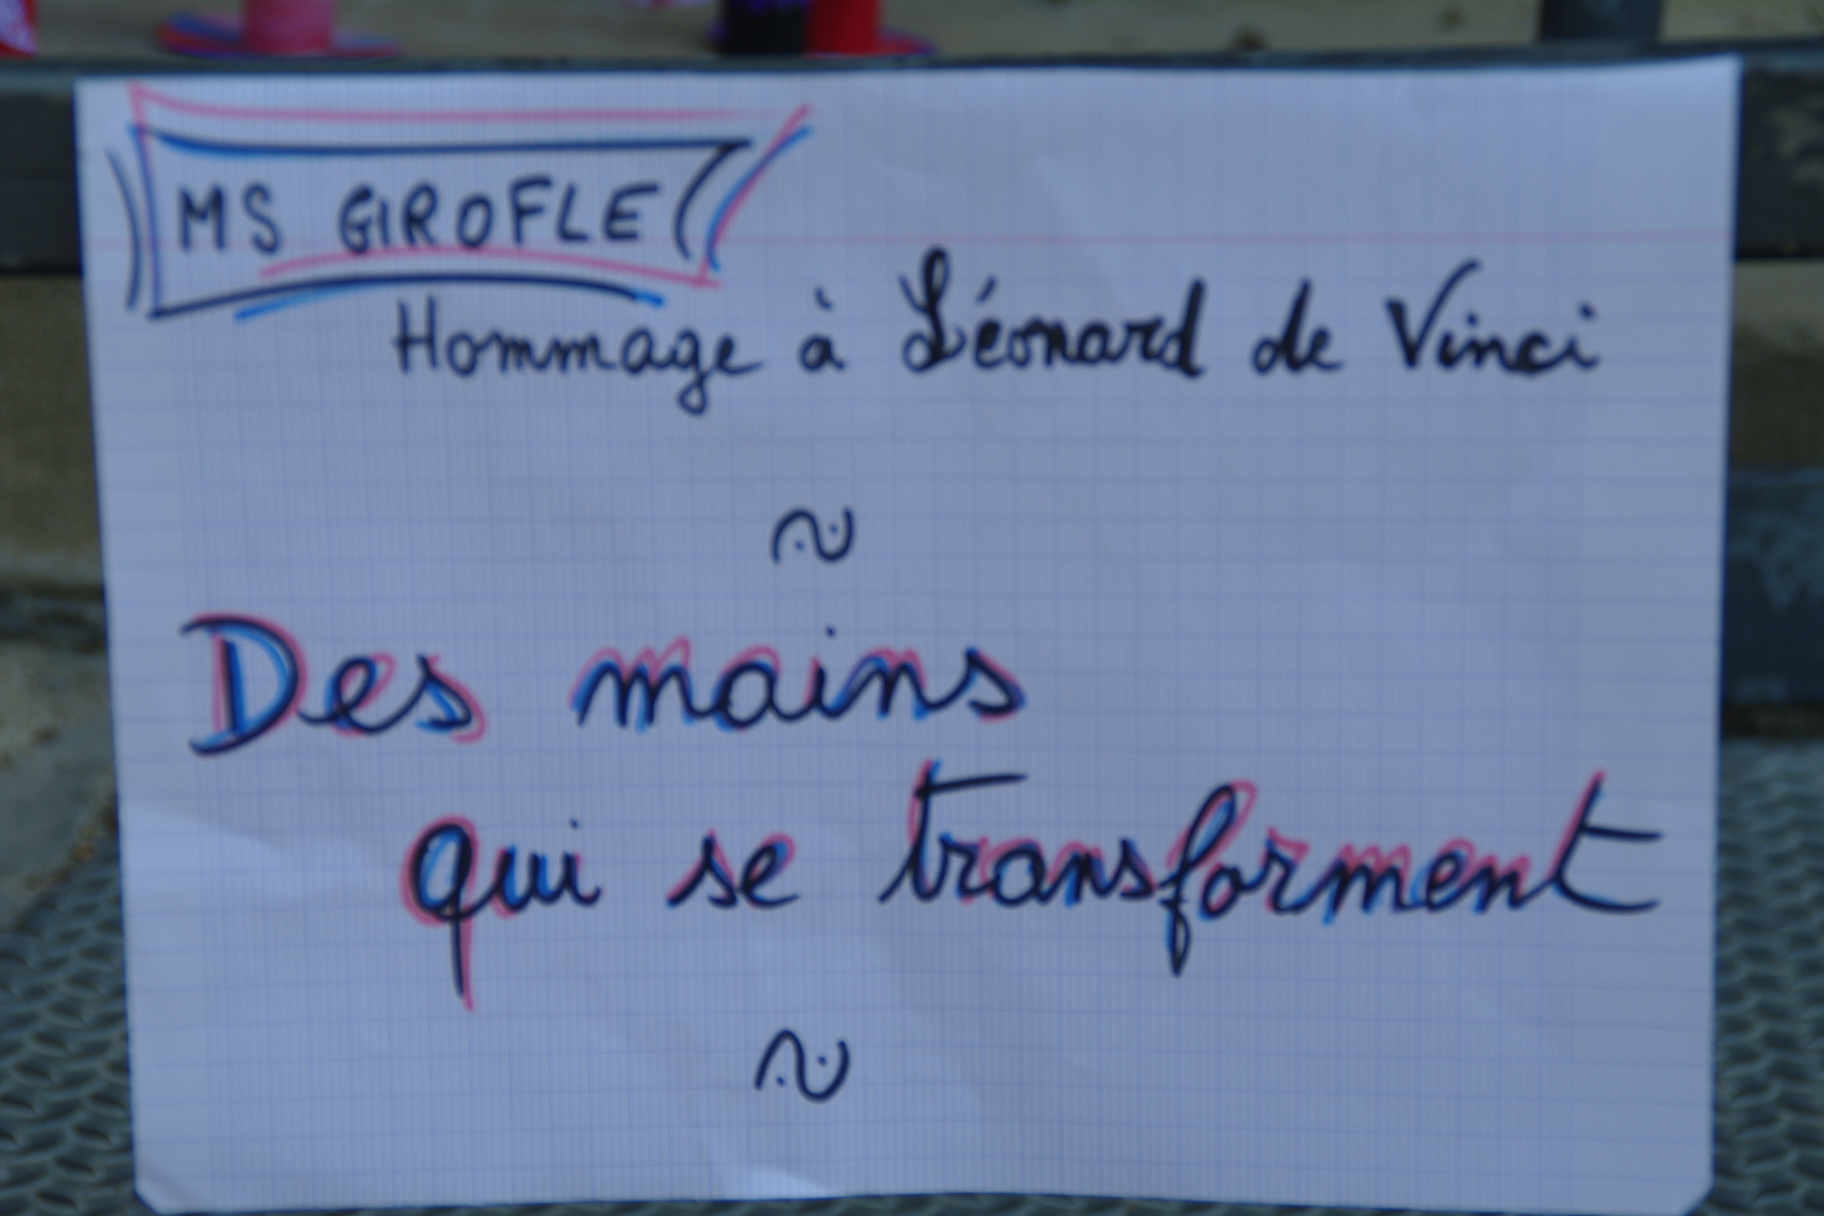 MS GIROFLE
Hommage à Léonard de Vinci
~
Des mains
qui se transforment
~